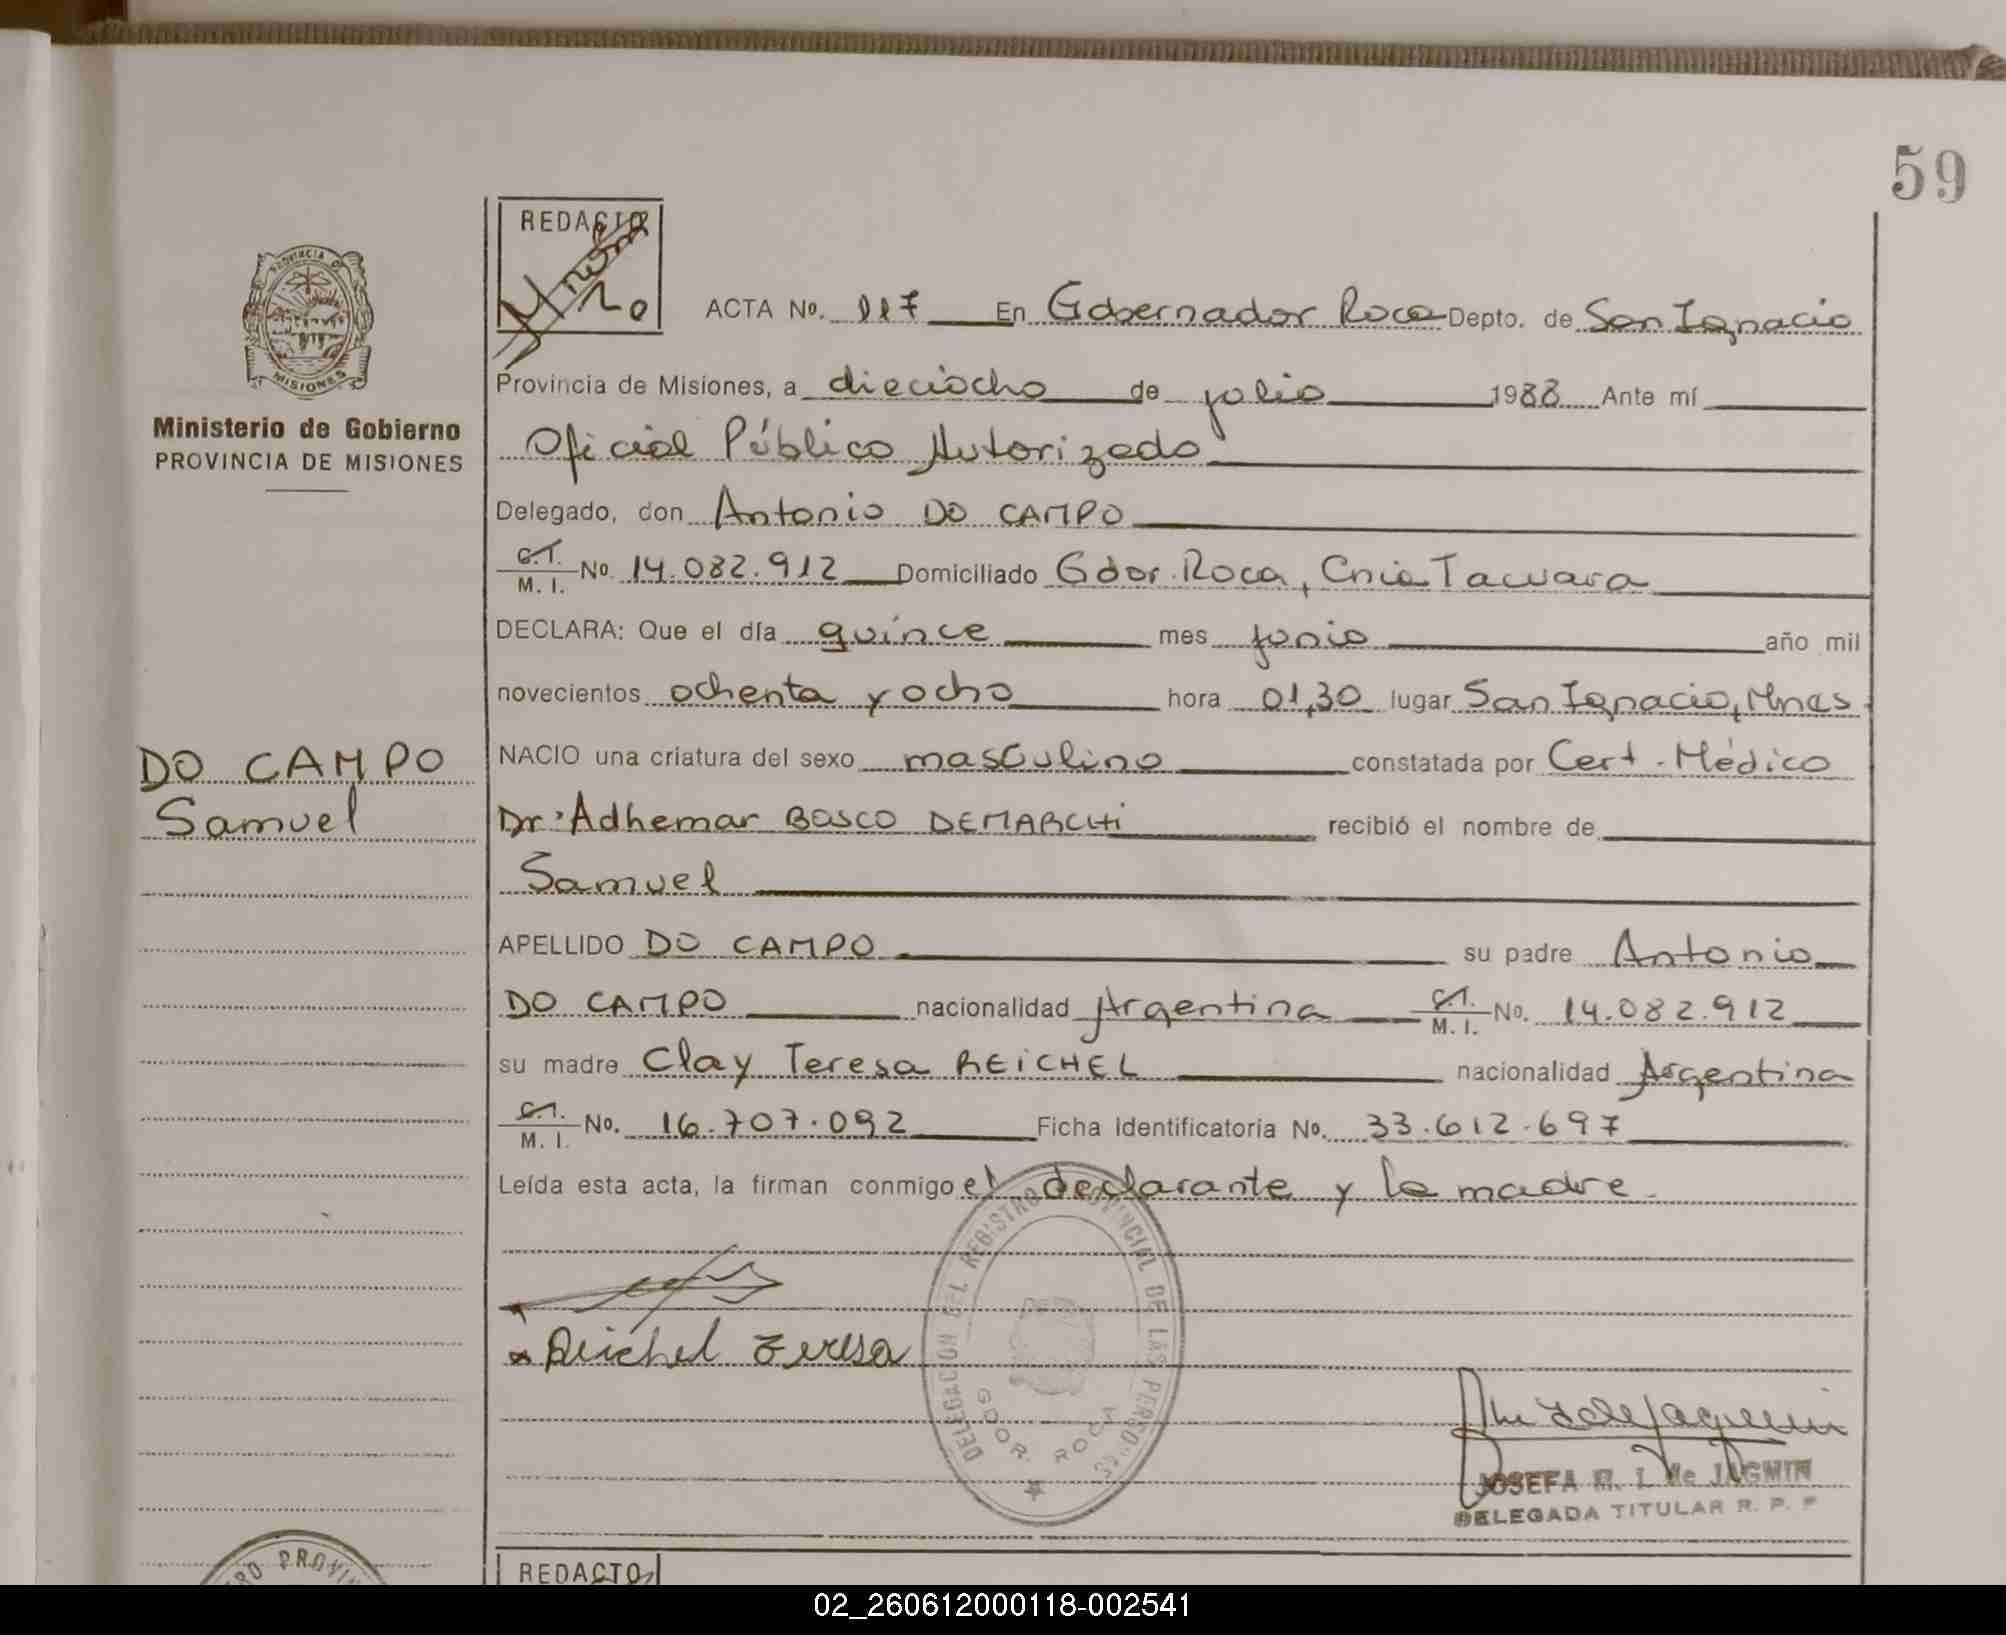 59
REDACTO
ACTA No. 117 En Gobernador Roca Depto. de San Ignacio
Provincia de Misiones, a dieciocho de julio 1988 Ante mí
Ministerio de Gobierno
PROVINCIA DE MISIONES
Oficial Público Autorizado
Delegado, don Antonio DO CAMPO
C.I. M. I. No. 14.082.912 Domiciliado Gdor. Roca, Cnia Tacuara
DECLARA: Que el día quince mes junio año mil
novecientos ochenta y ocho hora 01,30 lugar San Ignacio, Mnes.
DO CAMPO
Samuel
NACIO una criatura del sexo masculino constatada por Cert. Médico
Dr. Adhemar BOSCO DEMARCHI recibió el nombre de
Samuel
APELLIDO DO CAMPO su padre Antonio
DO CAMPO nacionalidad Argentina C.I. M. I. No. 14.082.912
su madre Clay Teresa REICHEL nacionalidad Argentina
C.I. M. I. No. 16.707.092 Ficha Identificatoria No. 33.612.697
Leída esta acta, la firman conmigo el declarante y la madre.
Reichel Teresa
DELEGACION DEL REGISTRO PROVINCIAL DE LAS PERSONAS
GDOR. ROCA
JOSEFA de JAGMIN
DELEGADA TITULAR R. P. P
REDACTO
02_260612000118-002541